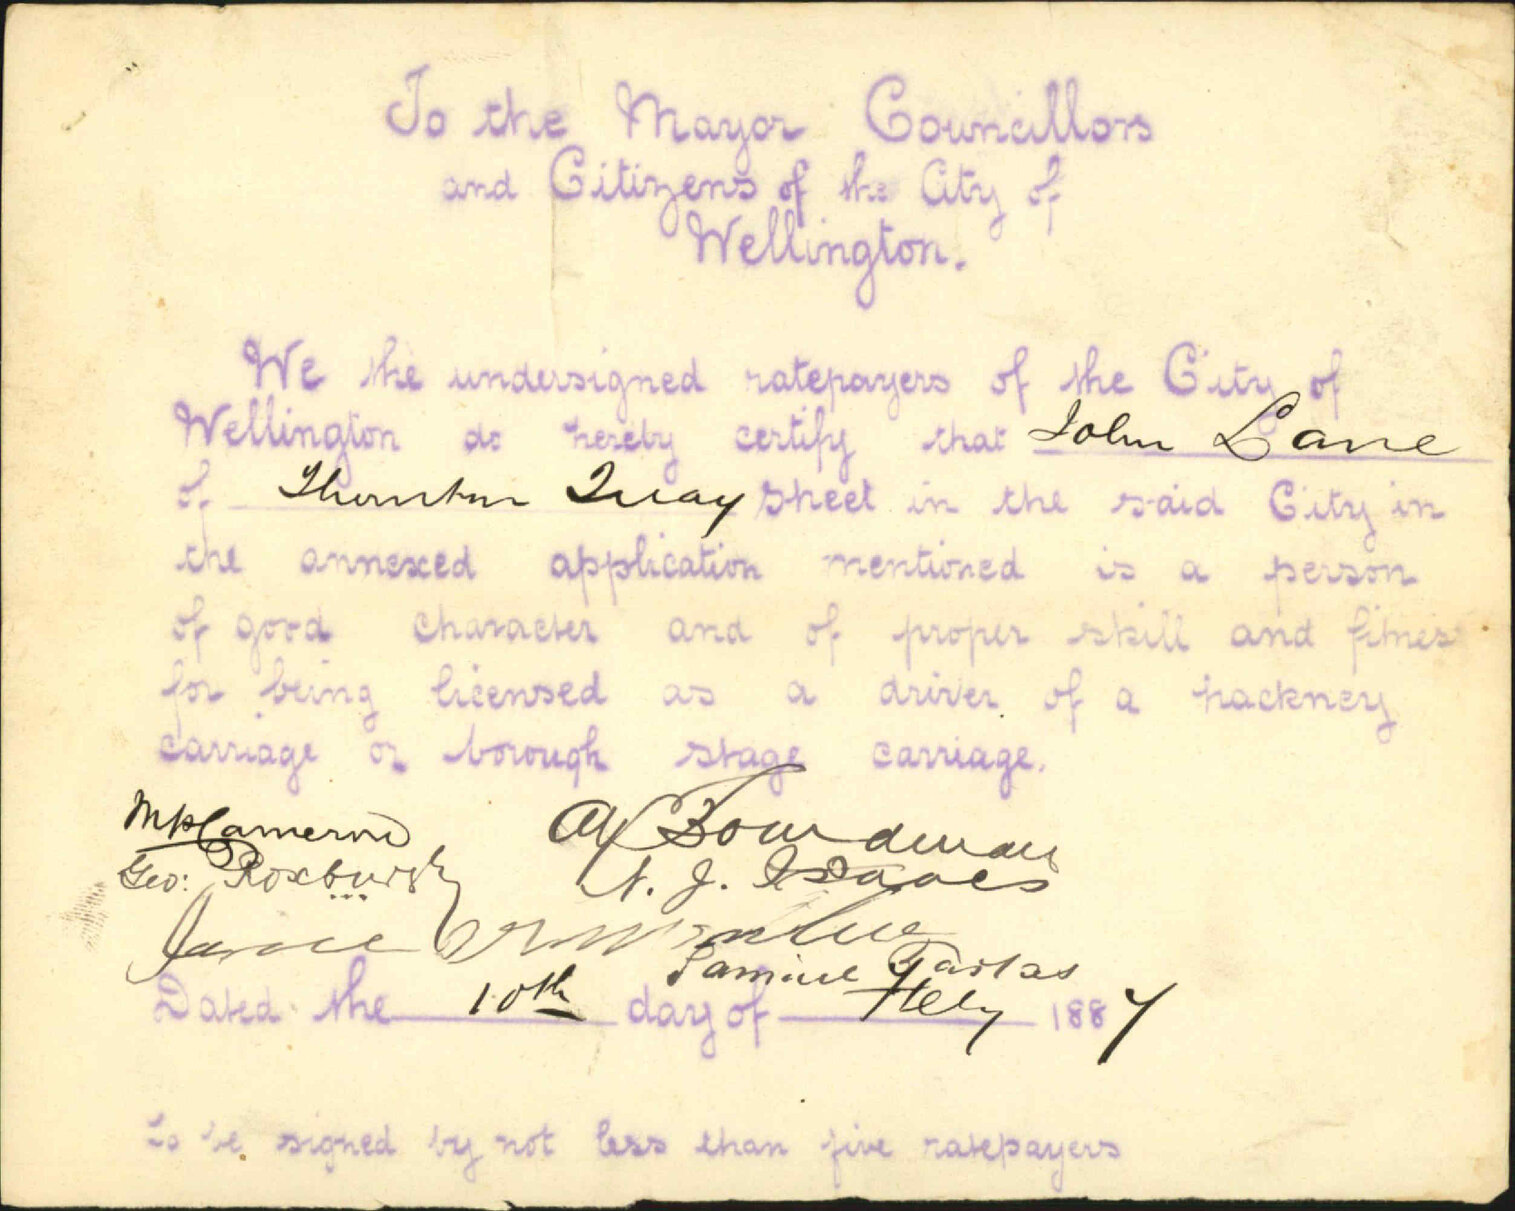 To the Mayor Councillors
and Citizens of the City of
Wellington.
We the undersigned ratepayers of the City of
Wellington do hereby certify that John Lane
of Thornton Quay Street in the said City in
the annexed application mentioned is a person
of good character and of proper skill and fitness
for being licensed as a driver of a hackney
carriage or borough stage carriage.
Cameron
Boardman
Geo: Roxburgh
J. Isaacs
Samuel
Dated the 10th day of Feby 1887
to be signed by not less than five ratepayers